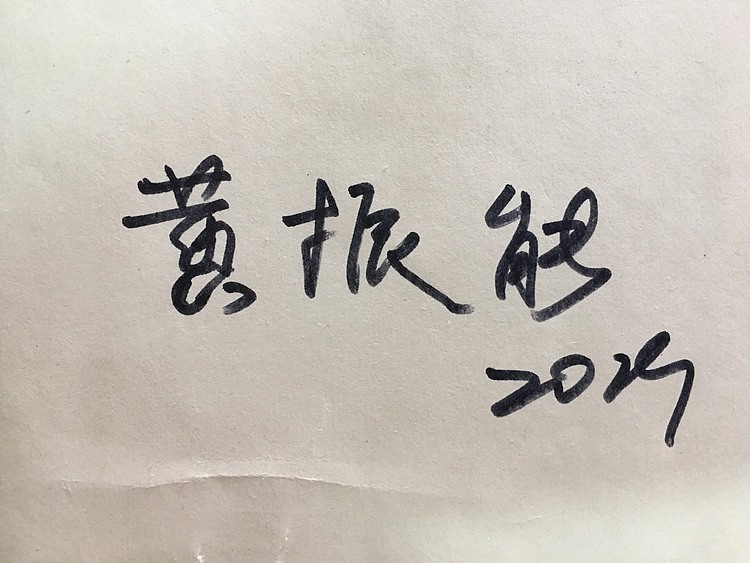 黄振能
2024